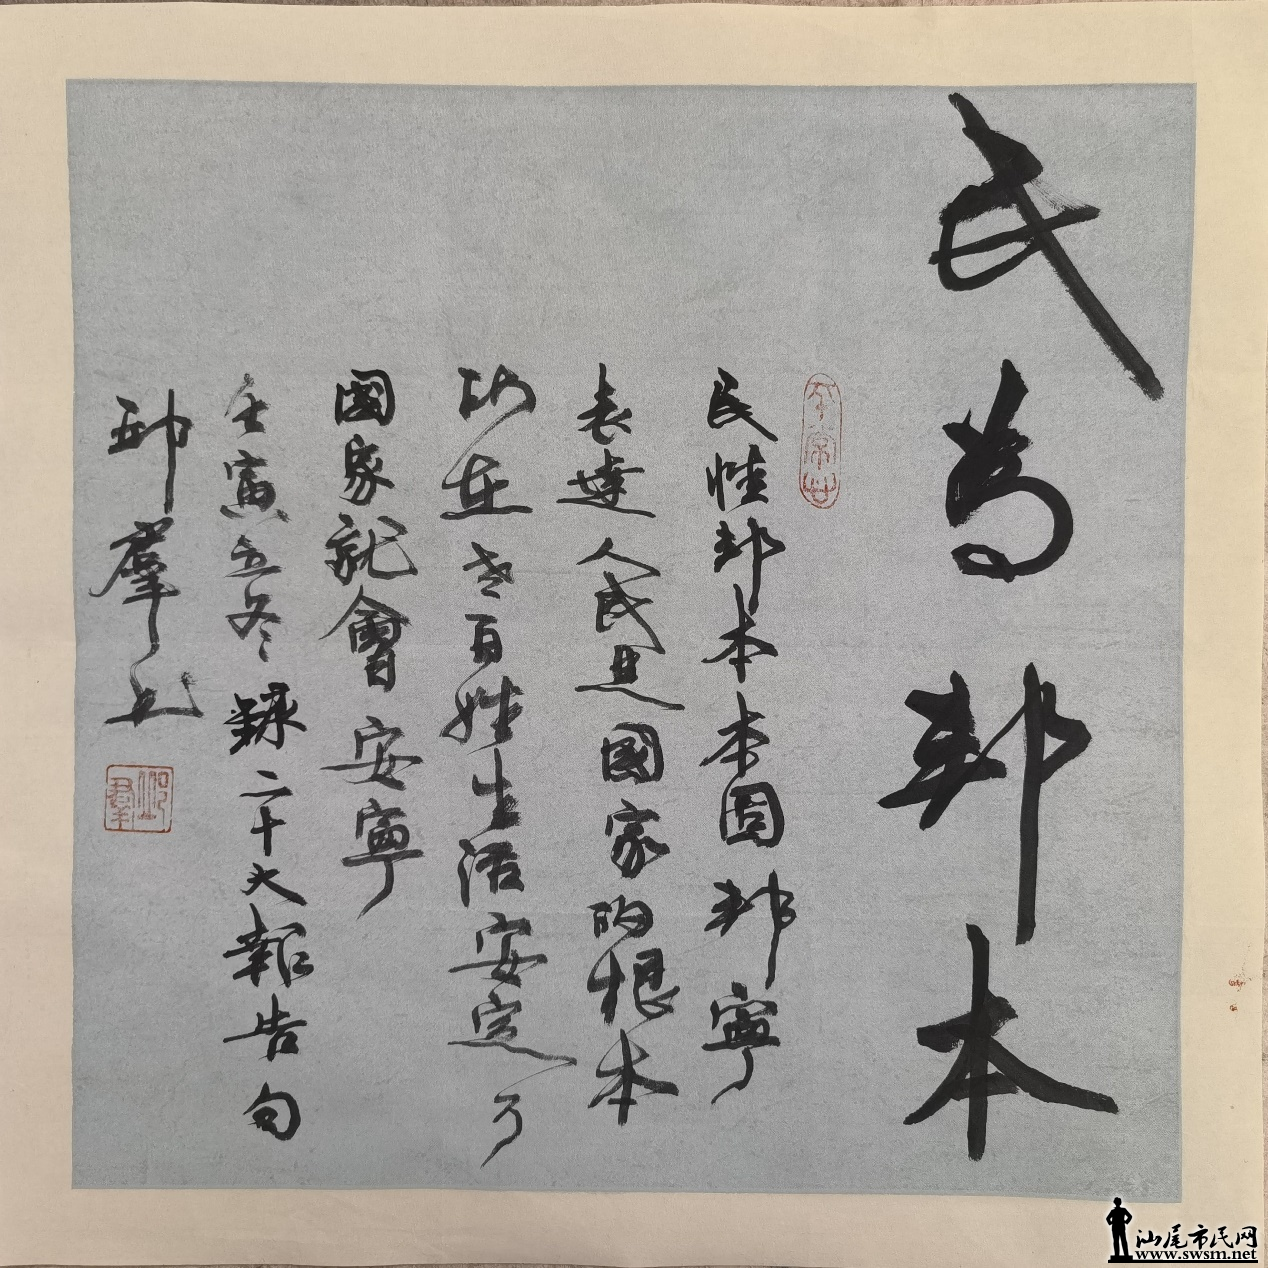 民為邦本
民惟邦本本固邦寧
表達人民是國家的根本
功在老百姓生活安定了
國家就會安寧
壬寅立冬錄二十大報告句
邱羣書
邱羣
汕尾市民网
www.swsm.net